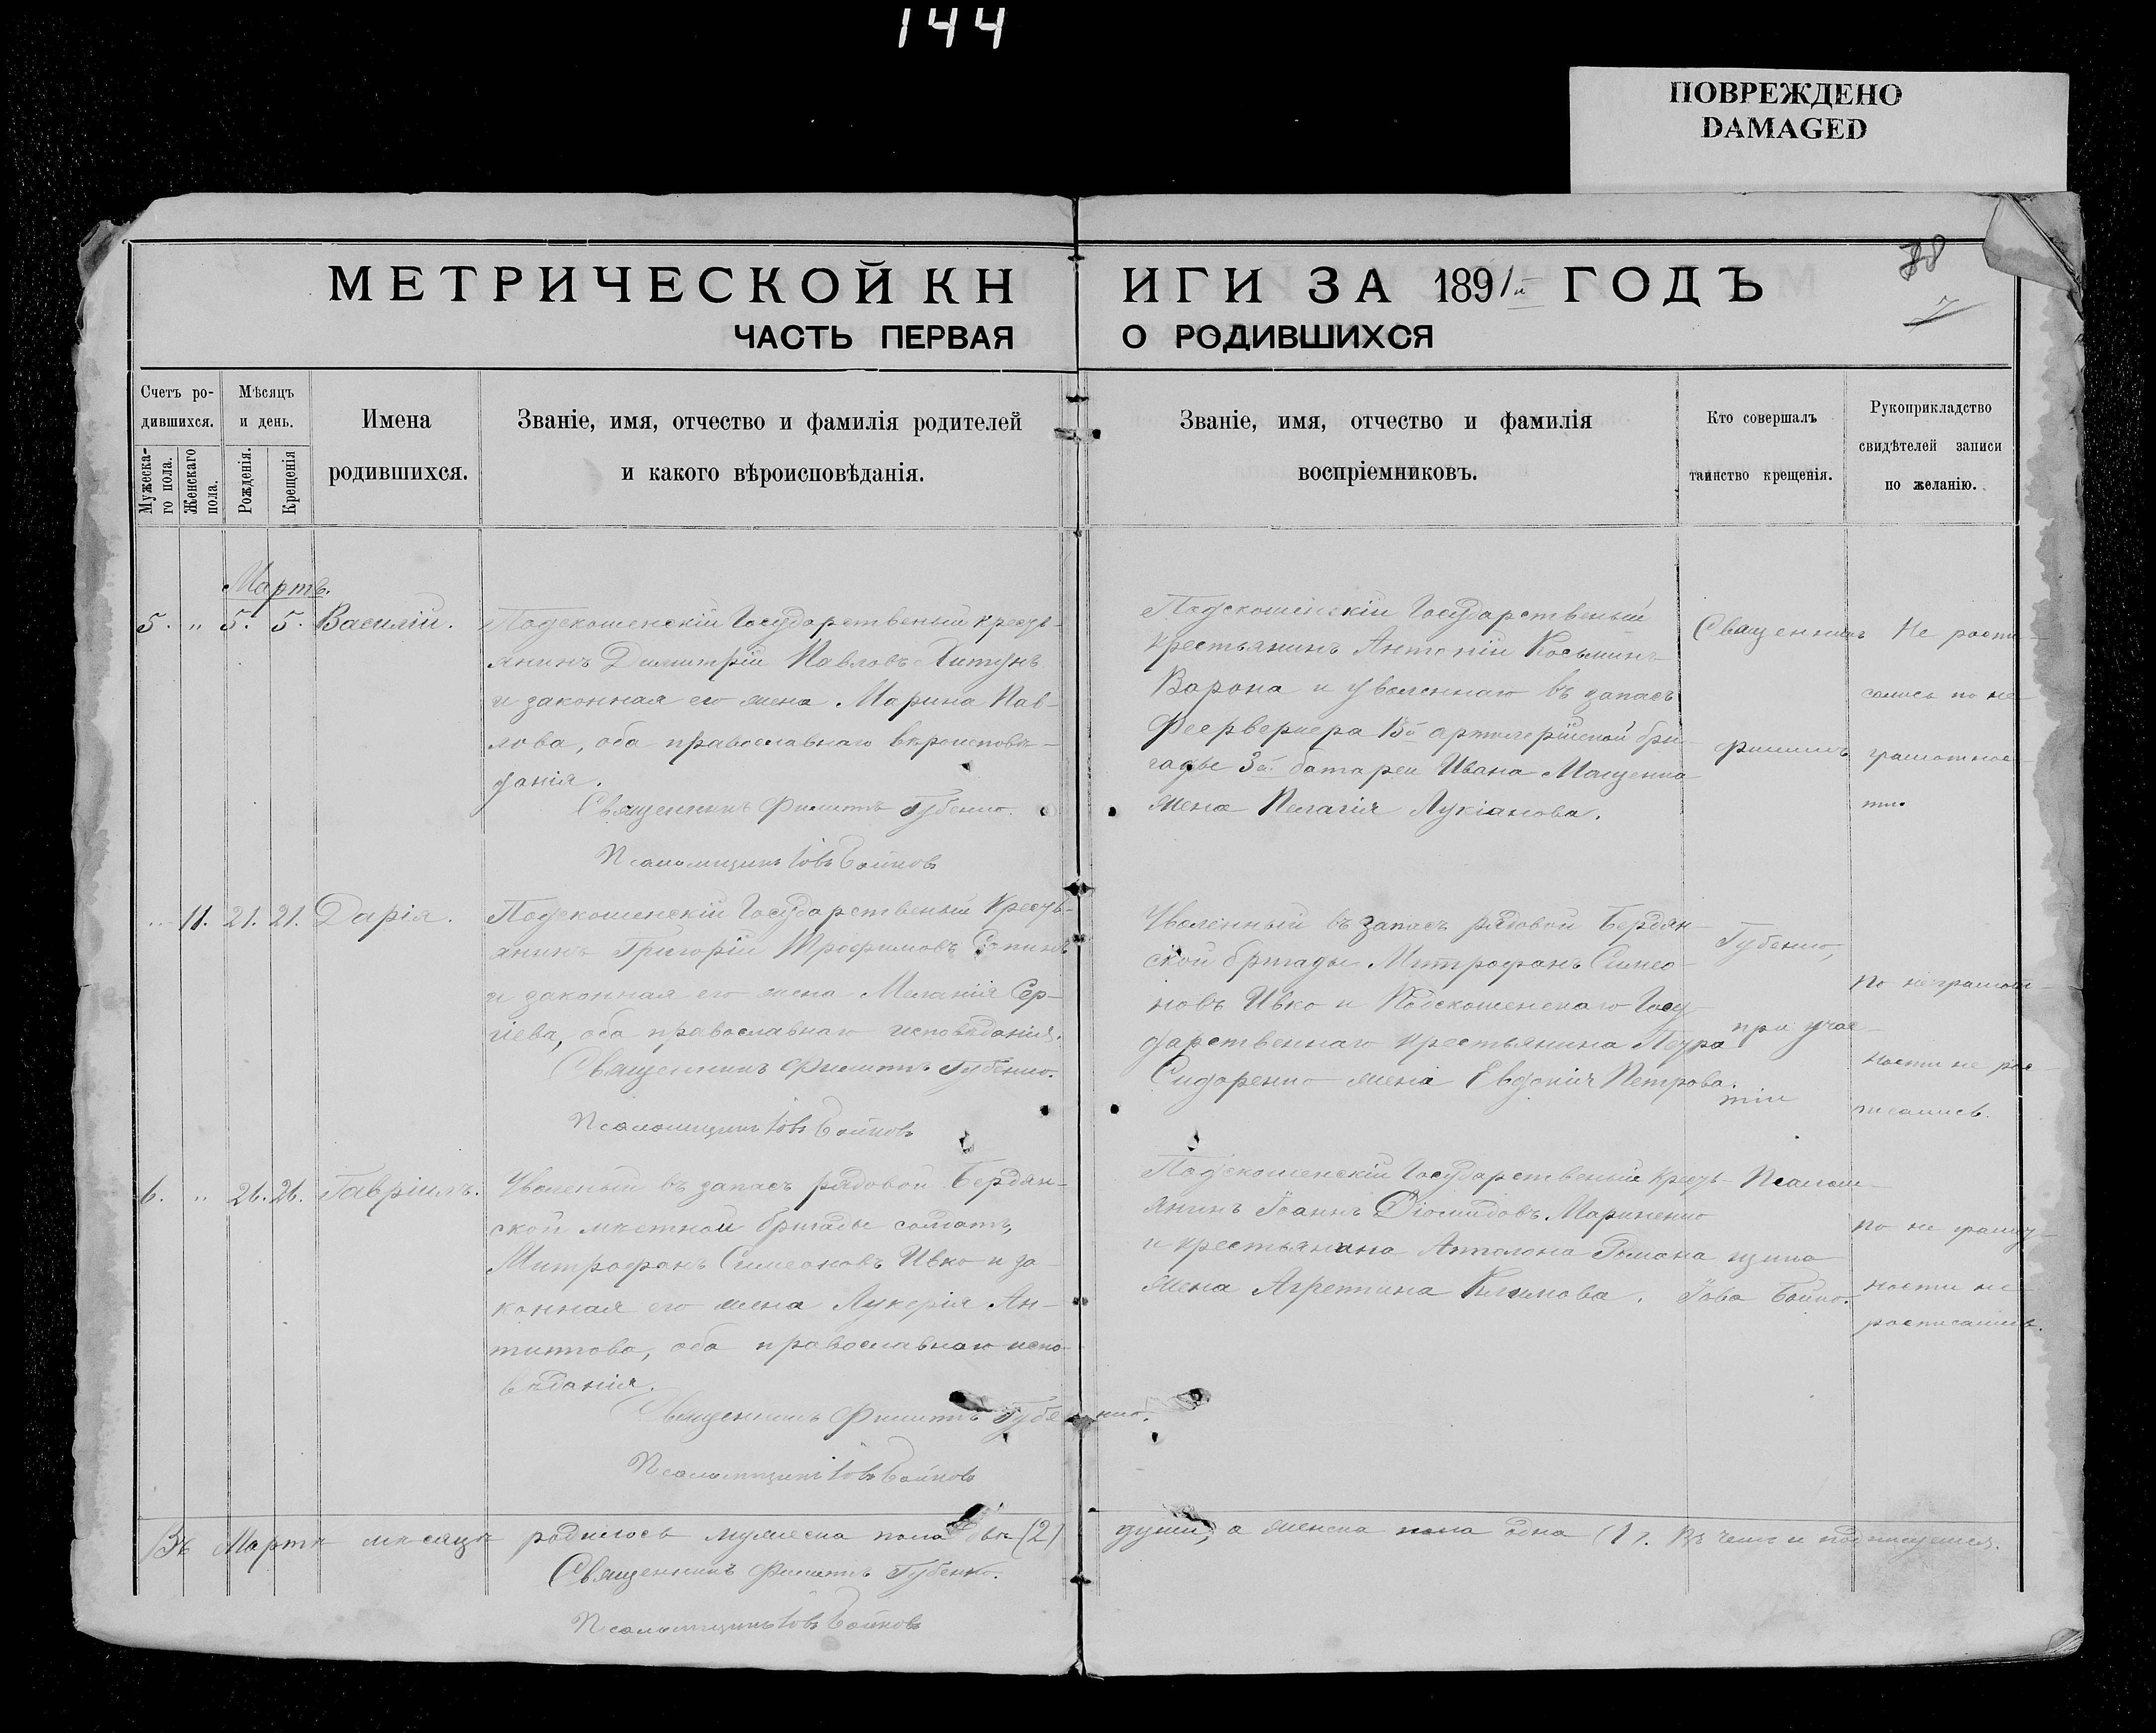 144
ПОВРЕЖДЕНО
DAMAGED
МЕТРИЧЕСКОЙ КНИГИ ЗА 1891й ГОДЪ
ЧАСТЬ ПЕРВАЯ О РОДИВШИХСЯ
Счетъ ро-
дившихся.
Мужеска-
го пола.
Женскаго
пола.
Мѣсяцъ
и день.
Рожденія.
Крещенія
Имена
родившихся.
Званіе, имя, отчество и фамилія родителей
и какого вѣроисповѣданія.
Званіе, имя, отчество и фамилія
воспріемниковъ.
Кто совершалъ
таинство крещенія.
Рукоприкладство
свидѣтелей записи
по желанію.
Мартъ.
5. " 5. 5. Василій.
Подскошенскій Государственый кресть-
янинъ Димитрій Павловъ
и законная его жена Марина Пав-
лова, оба православнаго вѣроисповѣ-
данія.
Священникъ Филиппъ Губенко.
Псаломщикъ Іовъ Бойковъ
Подскошенскій Государственый
крестьянинъ Антоній Косьминъ
Ворона и уволеннаго въ запасъ
феерверкера 13й артилерійской бри-
гады 3й батареи Ивана
жена Пелагія Лукіанова.
Священникъ
Филиппъ
Губенко,
при учас-
тіи
Псалом-
щика
Іова Бойко.
Не роспи-
сались по не-
грамотнос-
ти.
" 11. 21. 21. Дарія.
Подскошенскій Государственый Кресть-
янинъ Григорій Трофимовъ
и законная его жена Меланія Сер-
гіева, оба православнаго исповѣданія.
Священникъ Филиппъ Губенко.
Псаломщикъ Іовъ Бойковъ
Уволенный въ запасъ рядовой Бердян-
ской бригады Митрофанъ Симео-
новъ Ивко и Подскошенскаго Госу-
дарственнаго крестьянина Петра
Сидоренко жена Евдокія Петрова.
по неграмот-
ности не рос-
писались.
6. " 26. 26. Гавріилъ.
Уволеный въ запасъ рядовой Бердян-
ской мѣстной бригады солдатъ,
Митрофанъ Симеоновъ Ивко и за-
конная его жена Лукерія Ан-
типова, оба православнаго испо-
вѣданія.
Священникъ Филиппъ Губенко.
Псаломщикъ Іовъ Бойковъ
Подскошенскій Государственый кресть-
янинъ Іоаннъ Діомидовъ Мариненко
и крестьянина Апполона Романа
жена Агрепина Климова.
по не грамот-
ности не
росписались.
Въ Мартѣ мѣсяцѣ родилось мужеска пола двѣ (2) души, а женска пола одна (1). Въ чемъ и подписуемся.
Священникъ Филиппъ Губенко.
Псаломщикъ Іовъ Бойковъ